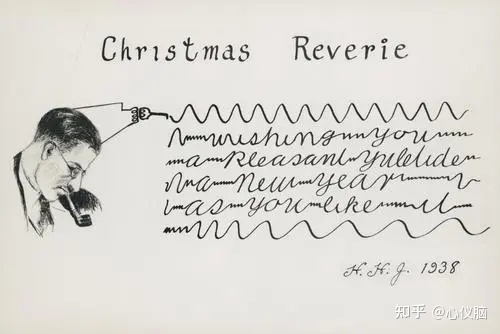 Christmas Reverie
wishing you
a Pleasant Yuletide
a New Year
as you like it
H. H. J. 1938
知乎 @心仪脑